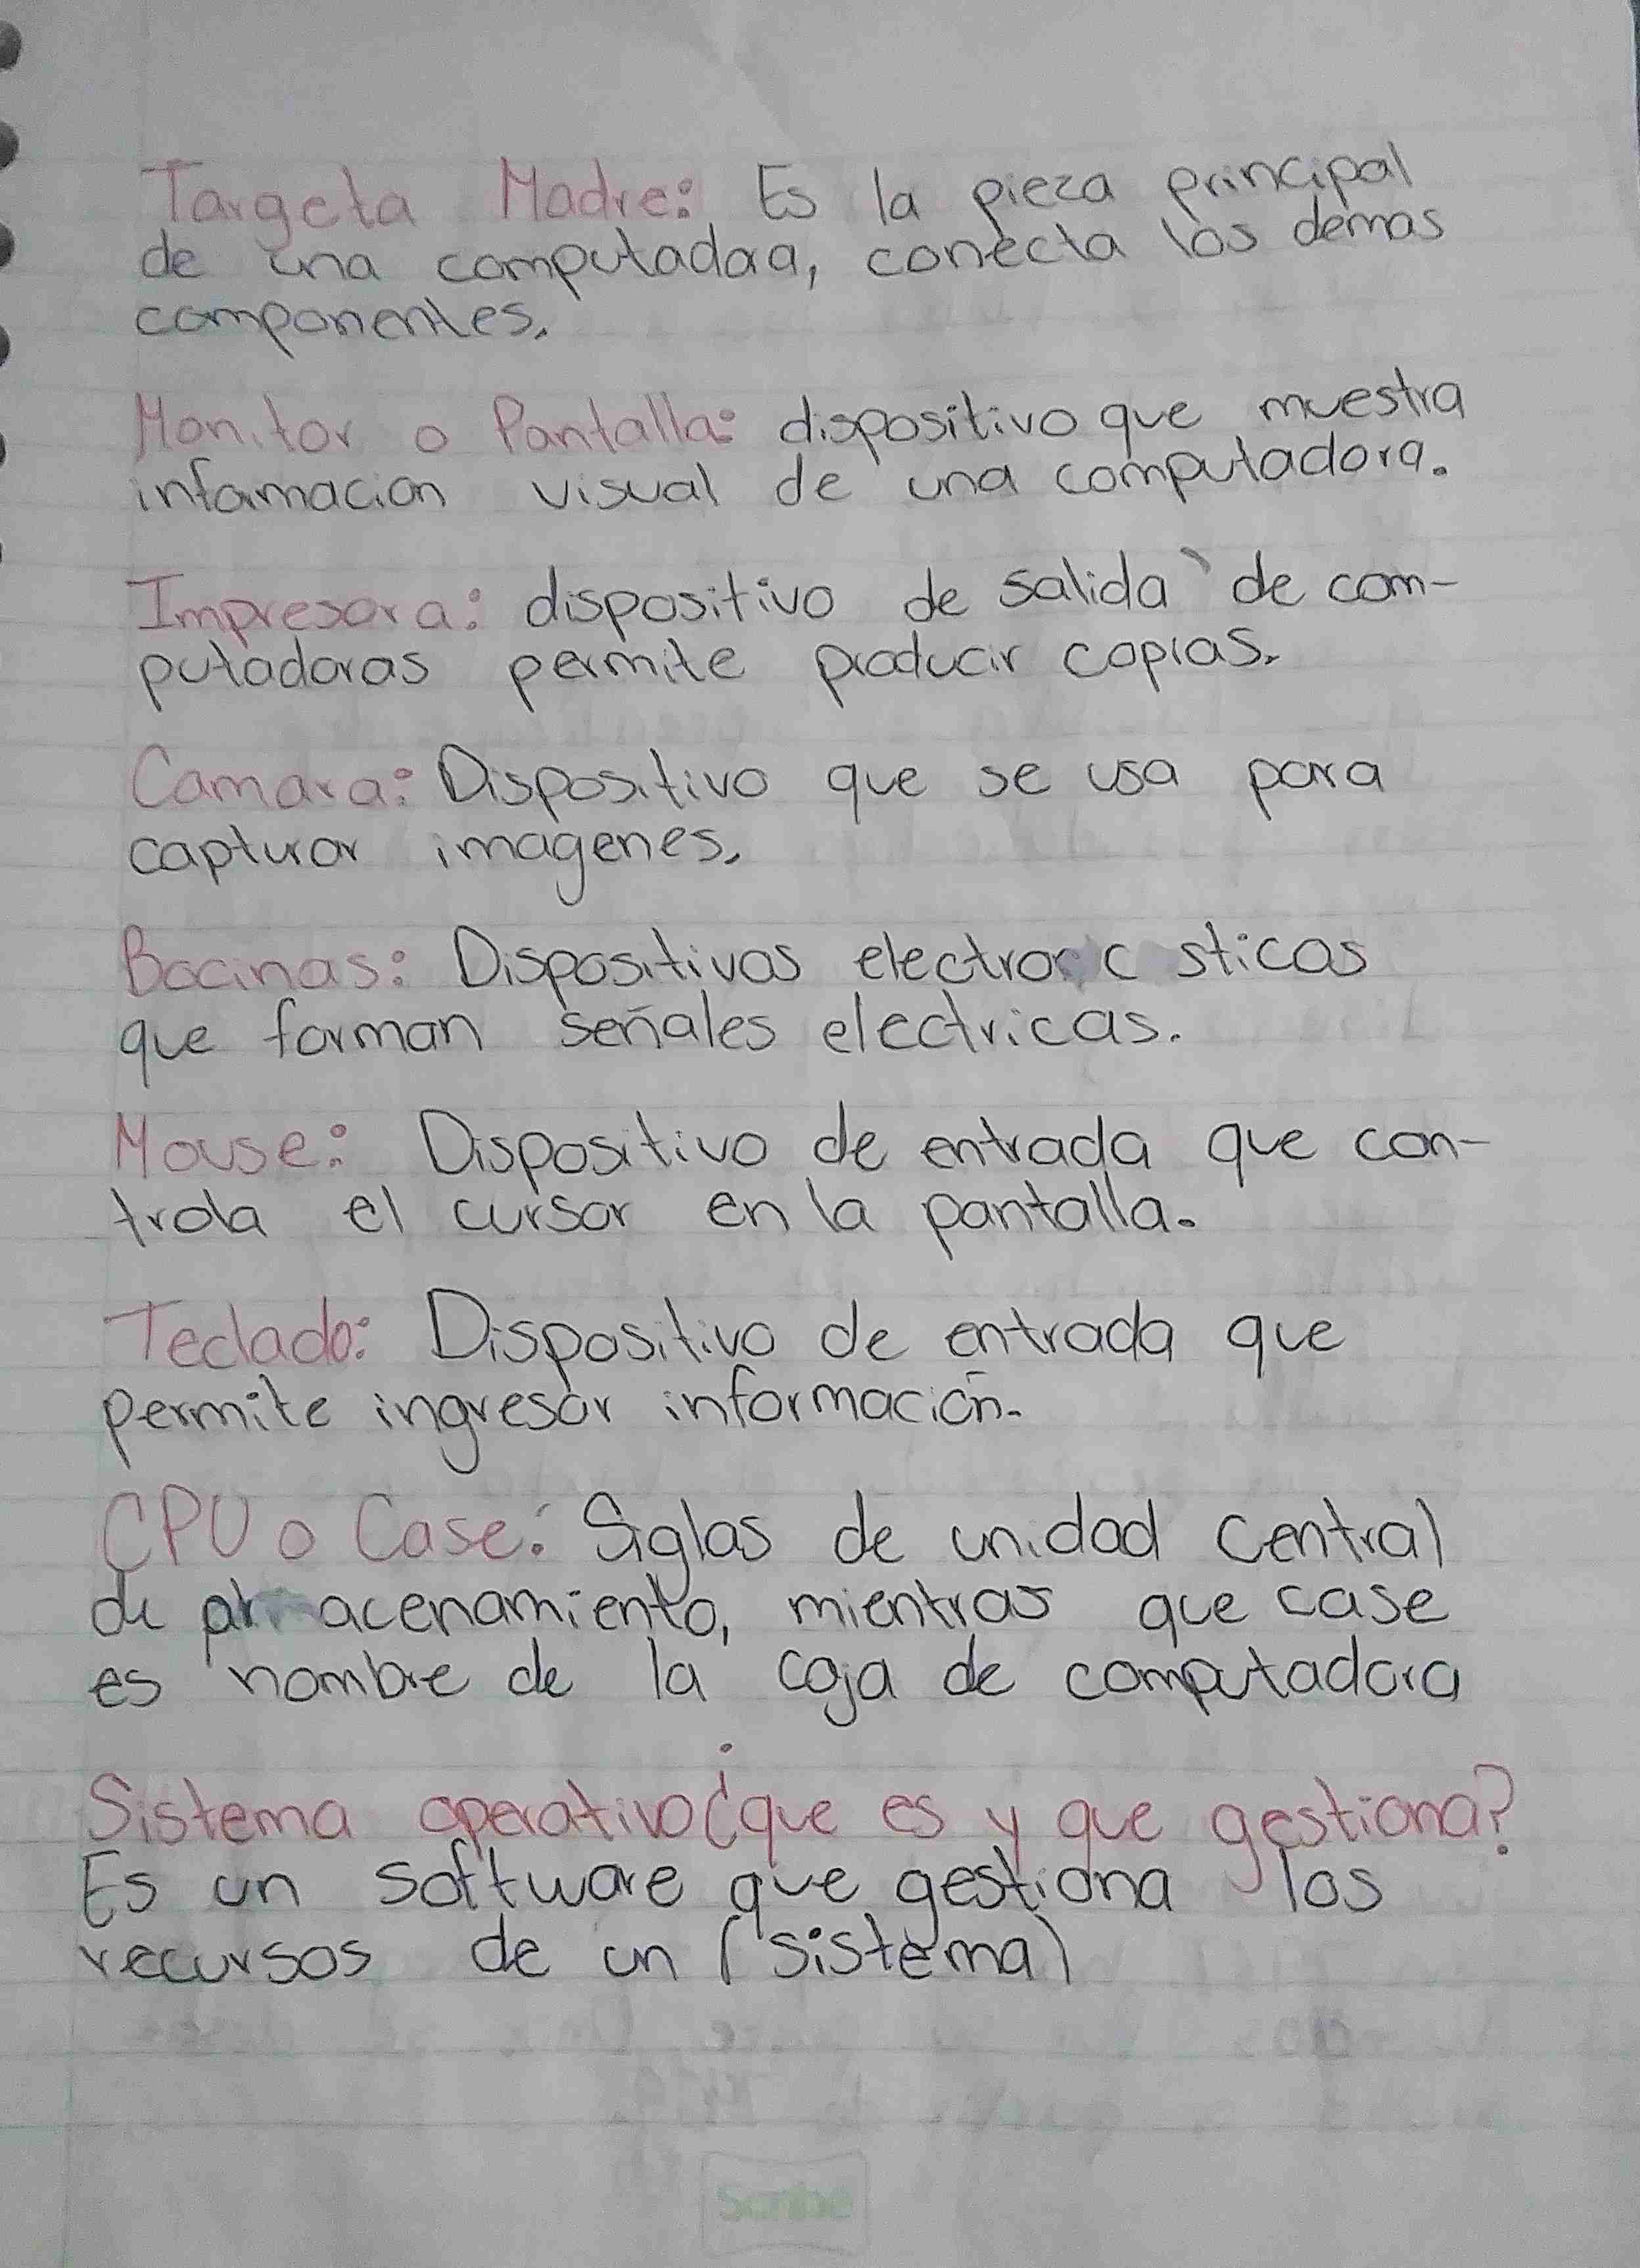 Targeta Madre: Es la pieza principal
de una computadora, conecta los demas
componentes.
Monitor o Pantalla: dispositivo que muestra
informacion visual de una computadora.
Impresora: dispositivo de salida de com-
putadoras permite producir copias.
Camara: Dispositivo que se usa para
capturar imagenes.
Bocinas: Dispositivos
que forman señales electricas.
Mouse: Dispositivo de entrada que con-
trola el cursor en la pantalla.
Teclado: Dispositivo de entrada que
permite ingresar información.
CPU o Case: Siglas de unidad central
de mientras que case
es nombre de la caja de computadora
Sistema operativo ¿que es y que gestiona?
Es un software que gestiona los
recursos de un (sistema)
Scribe